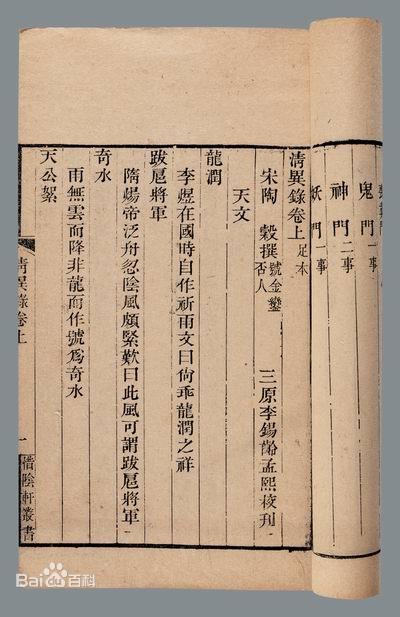 鬼門一事
神門二事
妖門一事
清異錄卷上足本
宋陶 穀撰號金鑾否人 三原李錫齡孟熙校刊
天文
龍潤
李煜在國時自作祈雨文曰尙乖龍潤之祥
跋扈將軍
隋煬帝泛舟忽陰風頗緊歎曰此風可謂跋扈將軍
奇水
雨無雲而降非龍而作號爲奇水
天公絮
清異錄卷上
一
惜陰軒叢書
Baidu百科